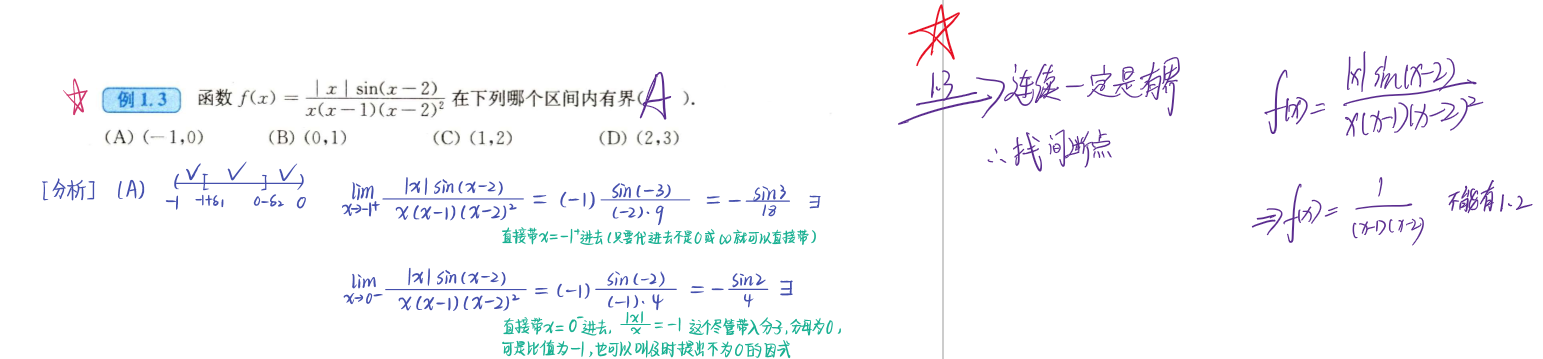 例1.3 函数 f(x) = |x|sin(x−2) / x(x−1)(x−2)² 在下列哪个区间内有界( A ).
(A) (−1,0) (B) (0,1) (C) (1,2) (D) (2,3)
[分析] (A) ( √ [ √ ] √ )
-1 -1+δ₁ 0-δ₂ 0
lim x→-1⁺ |x|sin(x-2) / x(x-1)(x-2)² = (-1) sin(-3) / (-2)·9 = - sin3 / 18 ∃
直接带x=-1⁺进去(只要代进去不是0或∞就可以直接带)
lim x→0⁻ |x|sin(x-2) / x(x-1)(x-2)² = (-1) sin(-2) / (-1)·4 = - sin2 / 4 ∃
直接带x=0⁻进去, |x|/x = -1 这个尽管带入分子,分母为0,
可是比值为-1,也可以叫及时提出不为0的因式
1.3 → 连续一定是有界
∴找间断点
f(x) = |x| sin(x-2) / x(x-1)(x-2)²
⇒ f(x) = 1 / (x-1)(x-2) 不能有1.2